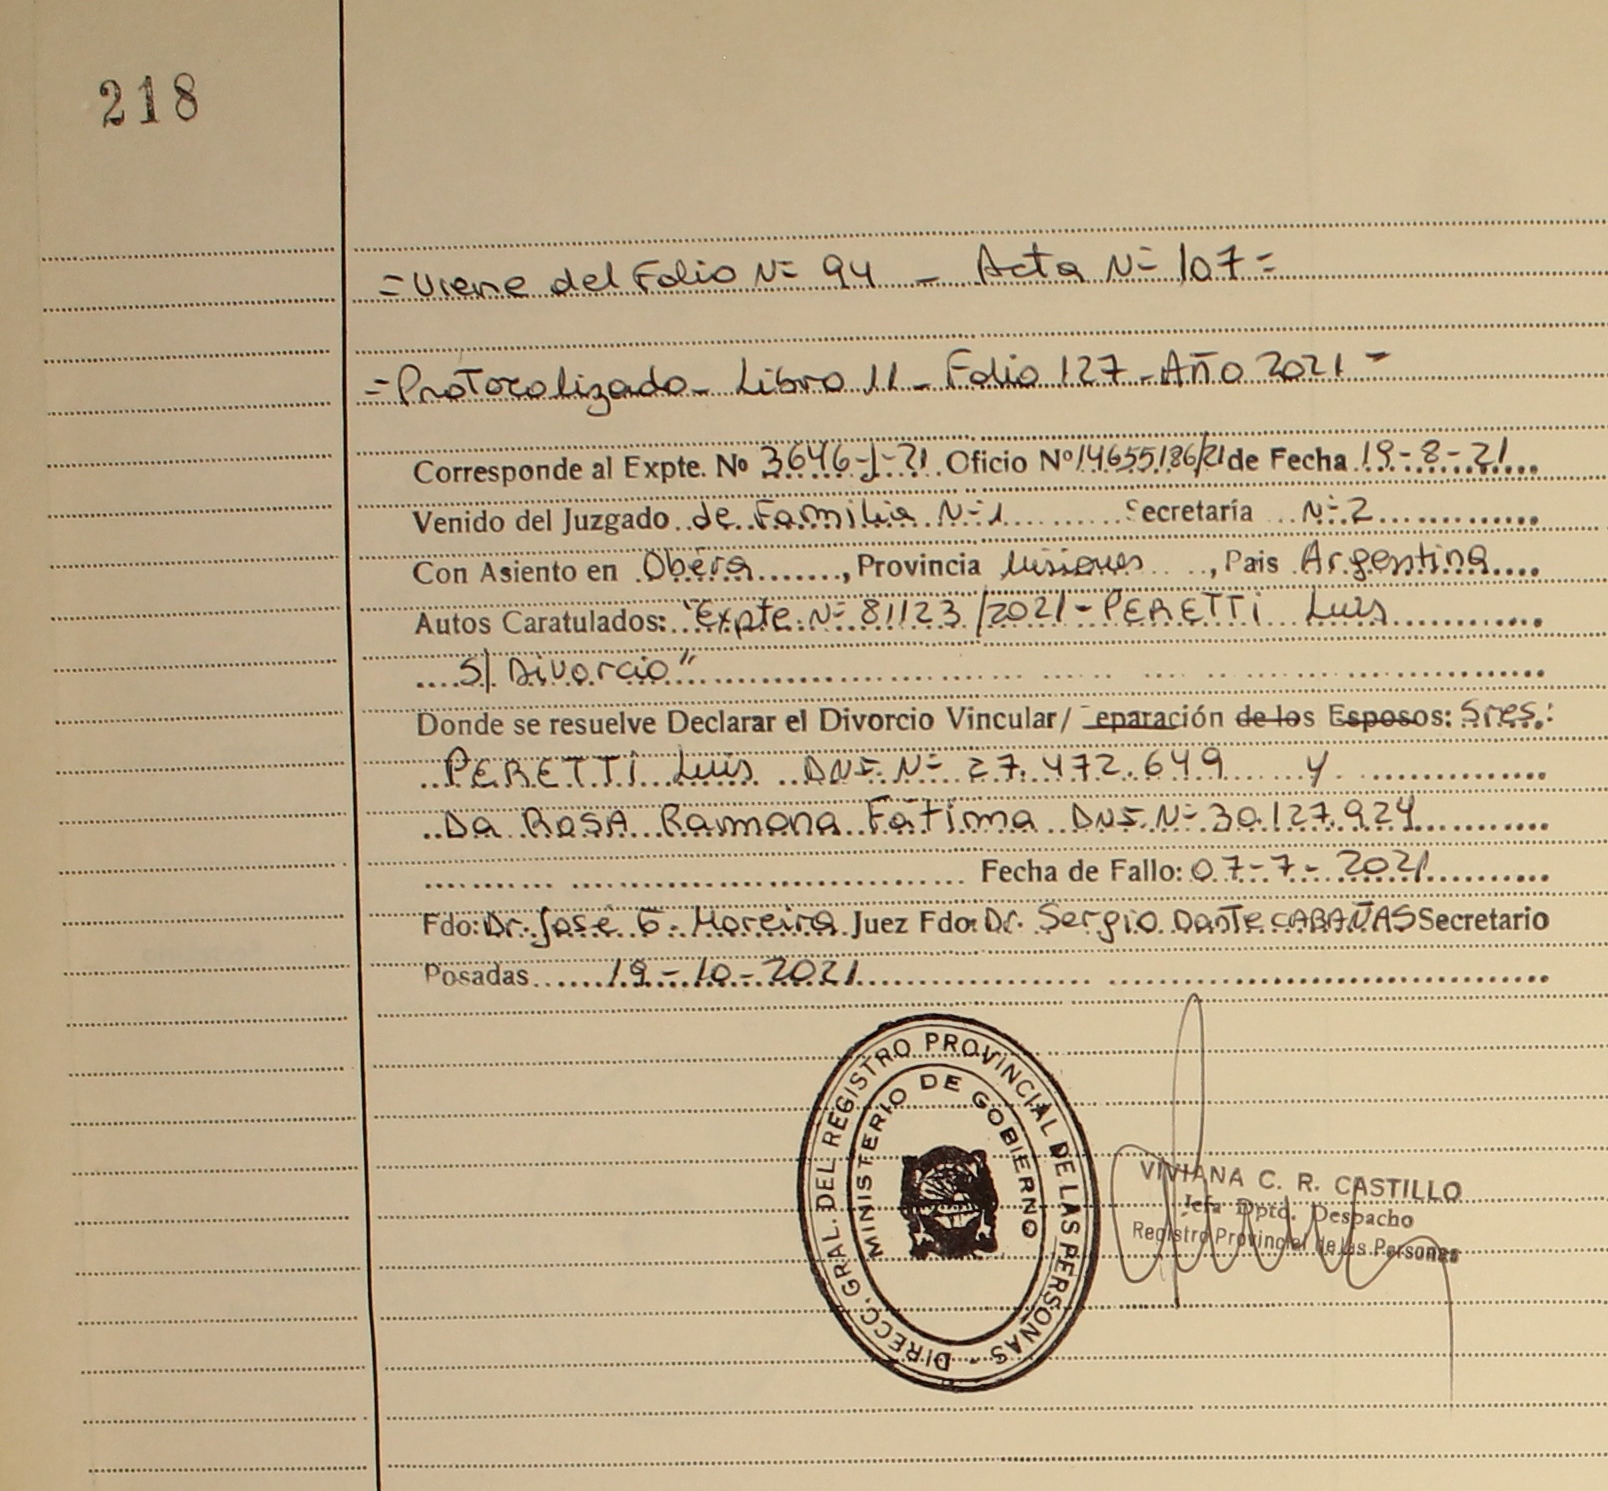 218
= Viene del Folio Nº 94 - Acta Nº 107 =
= Protocolizado - Libro 11 - Folio 127 - Año 2021 =
Corresponde al Expte. Nº 3646-J-21 Oficio Nº 14655186/21 de Fecha 19-8-21
Venido del Juzgado de Familia Nº 1 Secretaría Nº 2
Con Asiento en Oberá, Provincia Misiones, Pais Argentina
Autos Caratulados: "Expte. Nº 81123/2021 - PERETTI Luis
S/ Divorcio"
Donde se resuelve Declarar el Divorcio Vincular/ eparación de los Esposos: Sres.:
PERETTI Luis DNI. Nº 27.472.649 y
Da ROSA Ramona Fátima DNI. Nº 30.127.924
Fecha de Fallo: 07-7-2021
Fdo: Dr. José G. Moreira Juez Fdo: Dr. Sergio Dante CABAÑAS Secretario
Posadas 19-10-2021
DIRECC. GRAL. DEL REGISTRO PROVINCIAL DE LAS PERSONAS -
MINISTERIO DE GOBIERNO
VIVIANA C. R. CASTILLO
Jefa Dpto. Despacho
Registro Provincial de las Personas